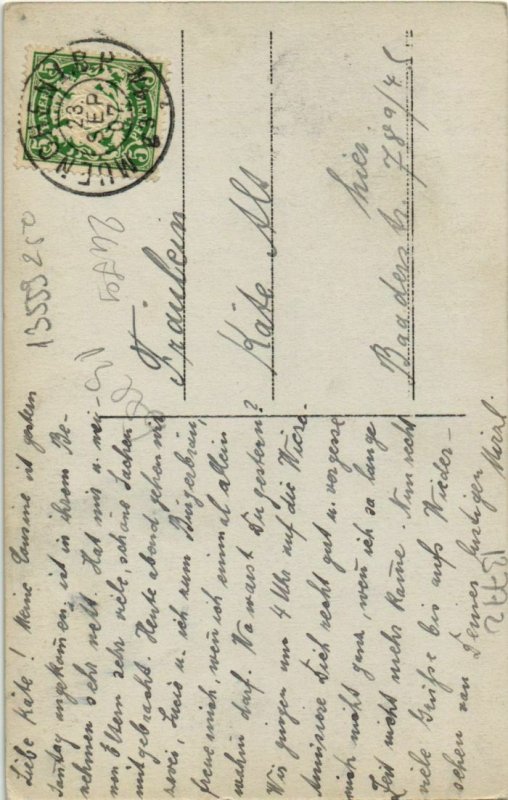 MUENCHEN 1 B.P.
23 SEP 07
BAYERN
13559 250
Fräulein
Käte Alt
hier.
Baaderstr. 78 9/4 r.
Liebe Käte! Meine Cousine ist gestern
Samstag angekommen, ist in ihrem Be-
nehmen sehr nett. Hat mir u. mei-
nen Eltern sehr viele, schöne Sachen
mitgebracht. Heute abend gehen wir
zwei, Lucie u. ich zum Bürgerbräu,
freue mich, wenn ich einmal allein
wohin darf. Wo warst Du gestern?
Wir gingen um 4 Uhr auf die Wiese.
Amüsiere Dich recht gut u. vergesse
mich nicht ganz, wenn ich so lange
Zeit nicht mehr kame. Nun recht
viele Grüße bis aufs Wieder-
sehen von Deiner lustigen Mirzl.